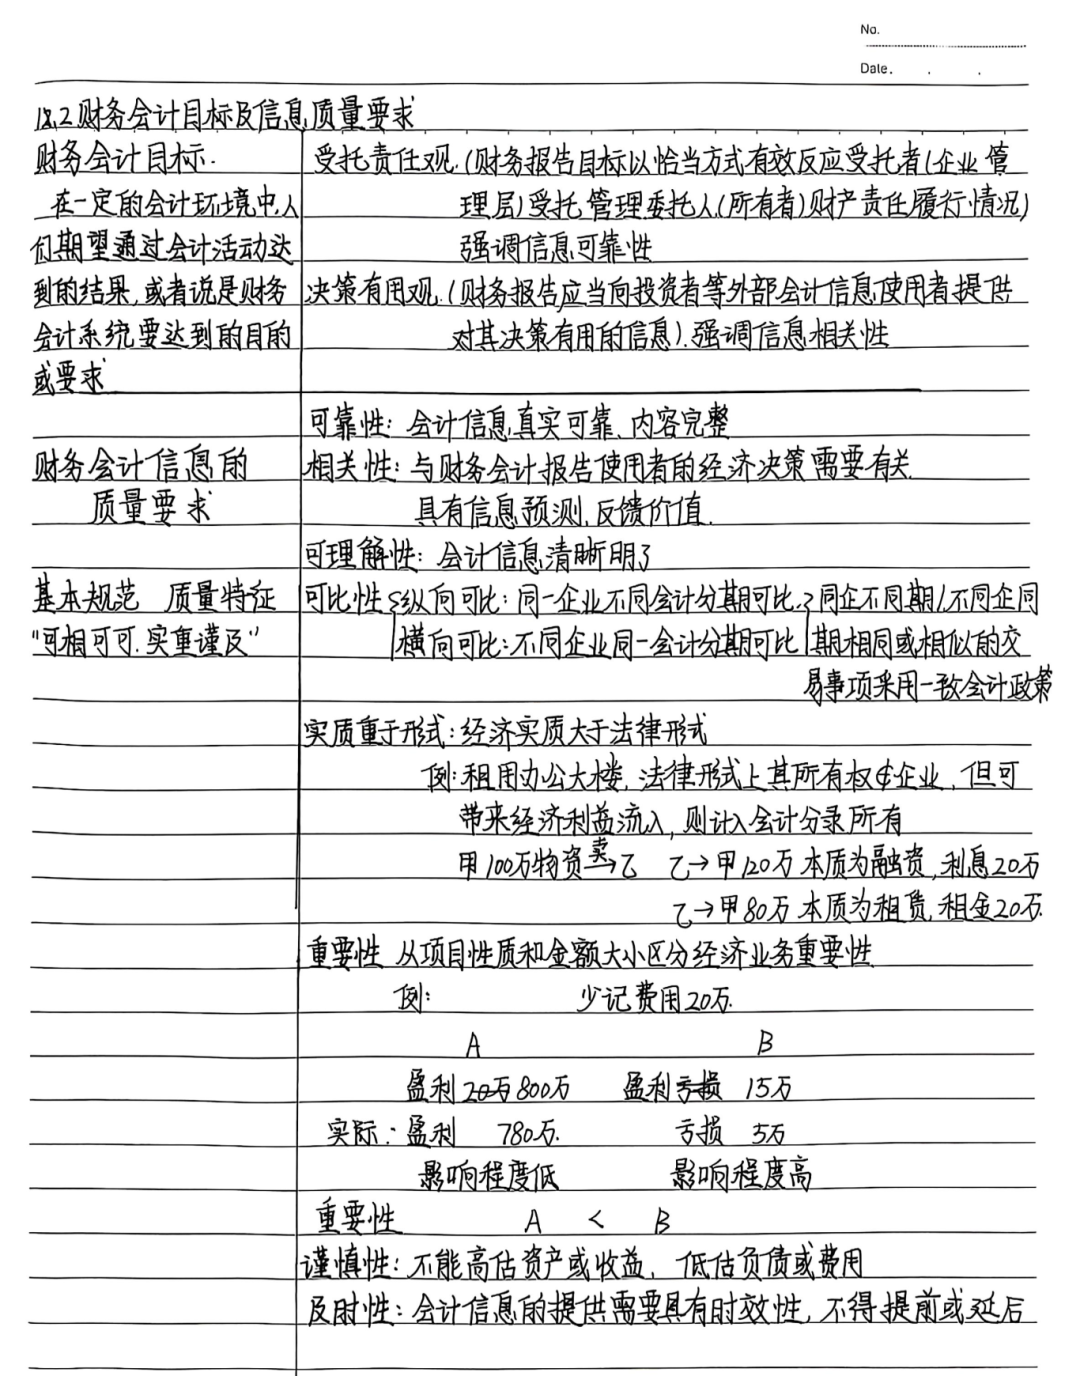 No.
Date.
1.2 财务会计目标及信息质量要求
财务会计目标.
在一定的会计环境中,人
们期望通过会计活动达
到的结果,或者说是财务
会计系统要达到的目的
或要求
受托责任观.(财务报告目标以恰当方式有效反应受托者(企业管
理层)受托管理委托人(所有者)财产责任履行情况)
强调信息可靠性
决策有用观.(财务报告应当向投资者等外部会计信息使用者提供
对其决策有用的信息).强调信息相关性
财务会计信息的
质量要求
基本规范 质量特征
"可相可可.实重谨及"
可靠性: 会计信息真实可靠、内容完整
相关性: 与财务会计报告使用者的经济决策需要有关.
具有信息预测.反馈价值.
可理解性: 会计信息清晰明了
可比性 纵向可比: 同一企业不同会计分期可比. 同企不同期/不同企同
横向可比: 不同企业同一会计分期可比 期相同或相似的交
易事项采用一致会计政策
实质重于形式: 经济实质大于法律形式
例: 租用办公大楼, 法律形式上其所有权∉企业, 但可
带来经济利益流入, 则计入会计分录所有
甲100万物资卖→乙 乙→甲120万 本质为融资,利息20万
乙→甲80万 本质为租赁,租金20万.
重要性 从项目性质和金额大小区分经济业务重要性
例: 少记费用20万.
A B
盈利20万800万 盈利亏损 15万
实际: 盈利 780万. 亏损 5万
影响程度低 影响程度高
重要性 A < B
谨慎性: 不能高估资产或收益, 低估负债或费用
及时性: 会计信息的提供需要具有时效性, 不得提前或延后